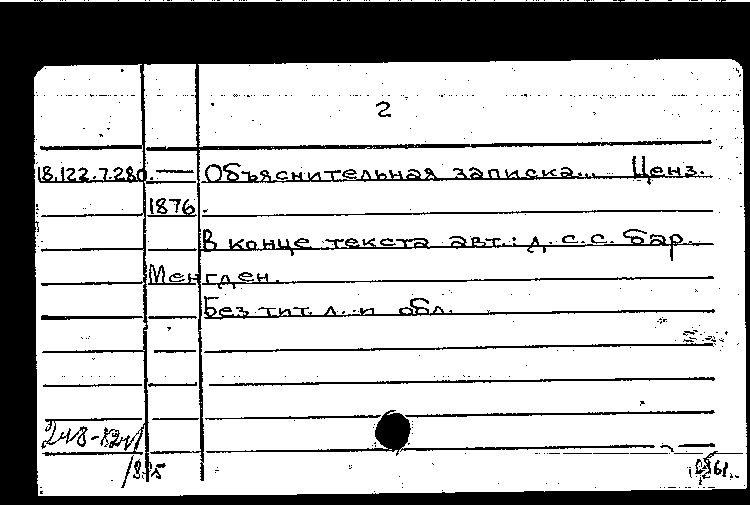 2
18.122.7.280. — Объяснительная записка... Ценз.
1876.
В конце текста авт.: д.с.с. бар.
Менгден.
Без тит. л. и обл.